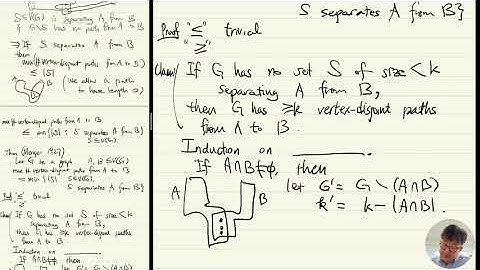 S⊆V(G) is separating A from B
if G\S has no path from A to B
⇒ If S separates A from B
then
max # vertex-disjoint paths from A to B
≤ |S|
A B
(We allow a path
to have length 0)
max # vertex-disjoint paths from A to B
≤ min{|S| : S separates A from B}
S⊆V(G)
Thm (Menger 1927)
Let G be a graph. A, B ⊆V(G)
max # vertex-disjoint paths from A to B
= min { |S| : S⊆V(G),
S separates A from B}
Proof "≤" trivial
"≥"
Claim) If G has no set S of size < k
separating A from B,
then G has ≥k vertex-disjoint paths
from A to B
Induction on
If A∩B≠∅, then
let G' = G \ (A∩B)
S separates A from B}
Proof "≤" trivial
"≥"
Claim) If G has no set S of size < k
separating A from B,
then G has ≥k vertex-disjoint paths
from A to B.
Induction on
If A∩B≠∅, then
A B
let G' = G \ (A∩B)
k' = k - |A∩B|.